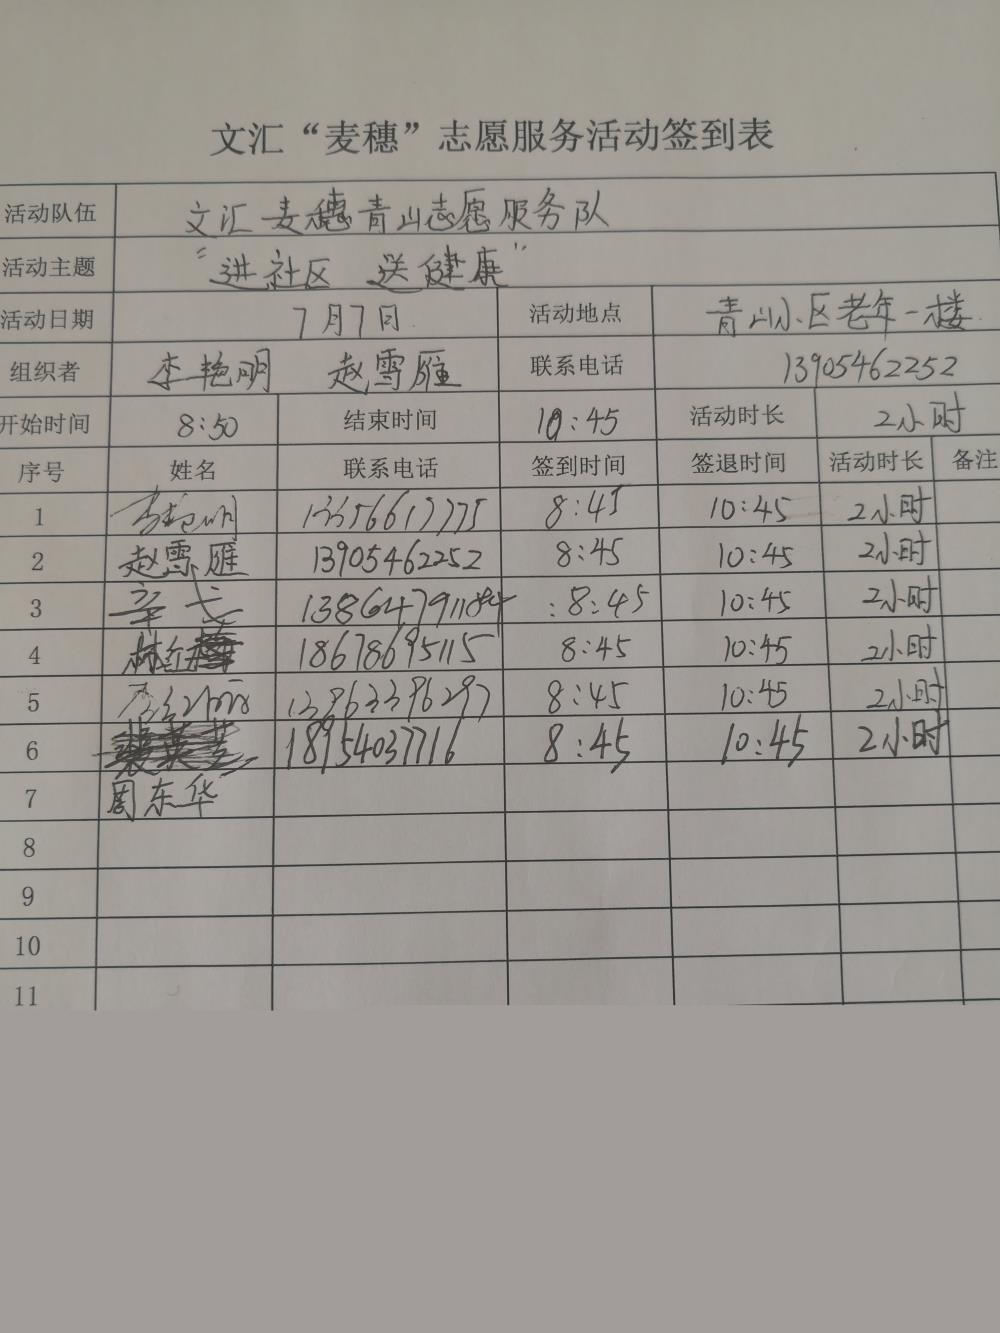 文汇“麦穗”志愿服务活动签到表
活动队伍 文汇麦穗青山志愿服务队
活动主题 “进社区 送健康”
活动日期 7月7日 活动地点 青山小区老年一楼
组织者 李艳明 赵雪雁 联系电话 13905462252
开始时间 8:50 结束时间 10:45 活动时长 2小时
序号 姓名 联系电话 签到时间 签退时间 活动时长 备注
1 李艳明 13356617775 8:45 10:45 2小时
2 赵雪雁 13905462252 8:45 10:45 2小时
3 8:45 10:45 2小时
4 林红梅 18678695115 8:45 10:45 2小时
5 13963396297 8:45 10:45 2小时
6 18954037716 8:45 10:45 2小时
7 周东华
8
9
10
11